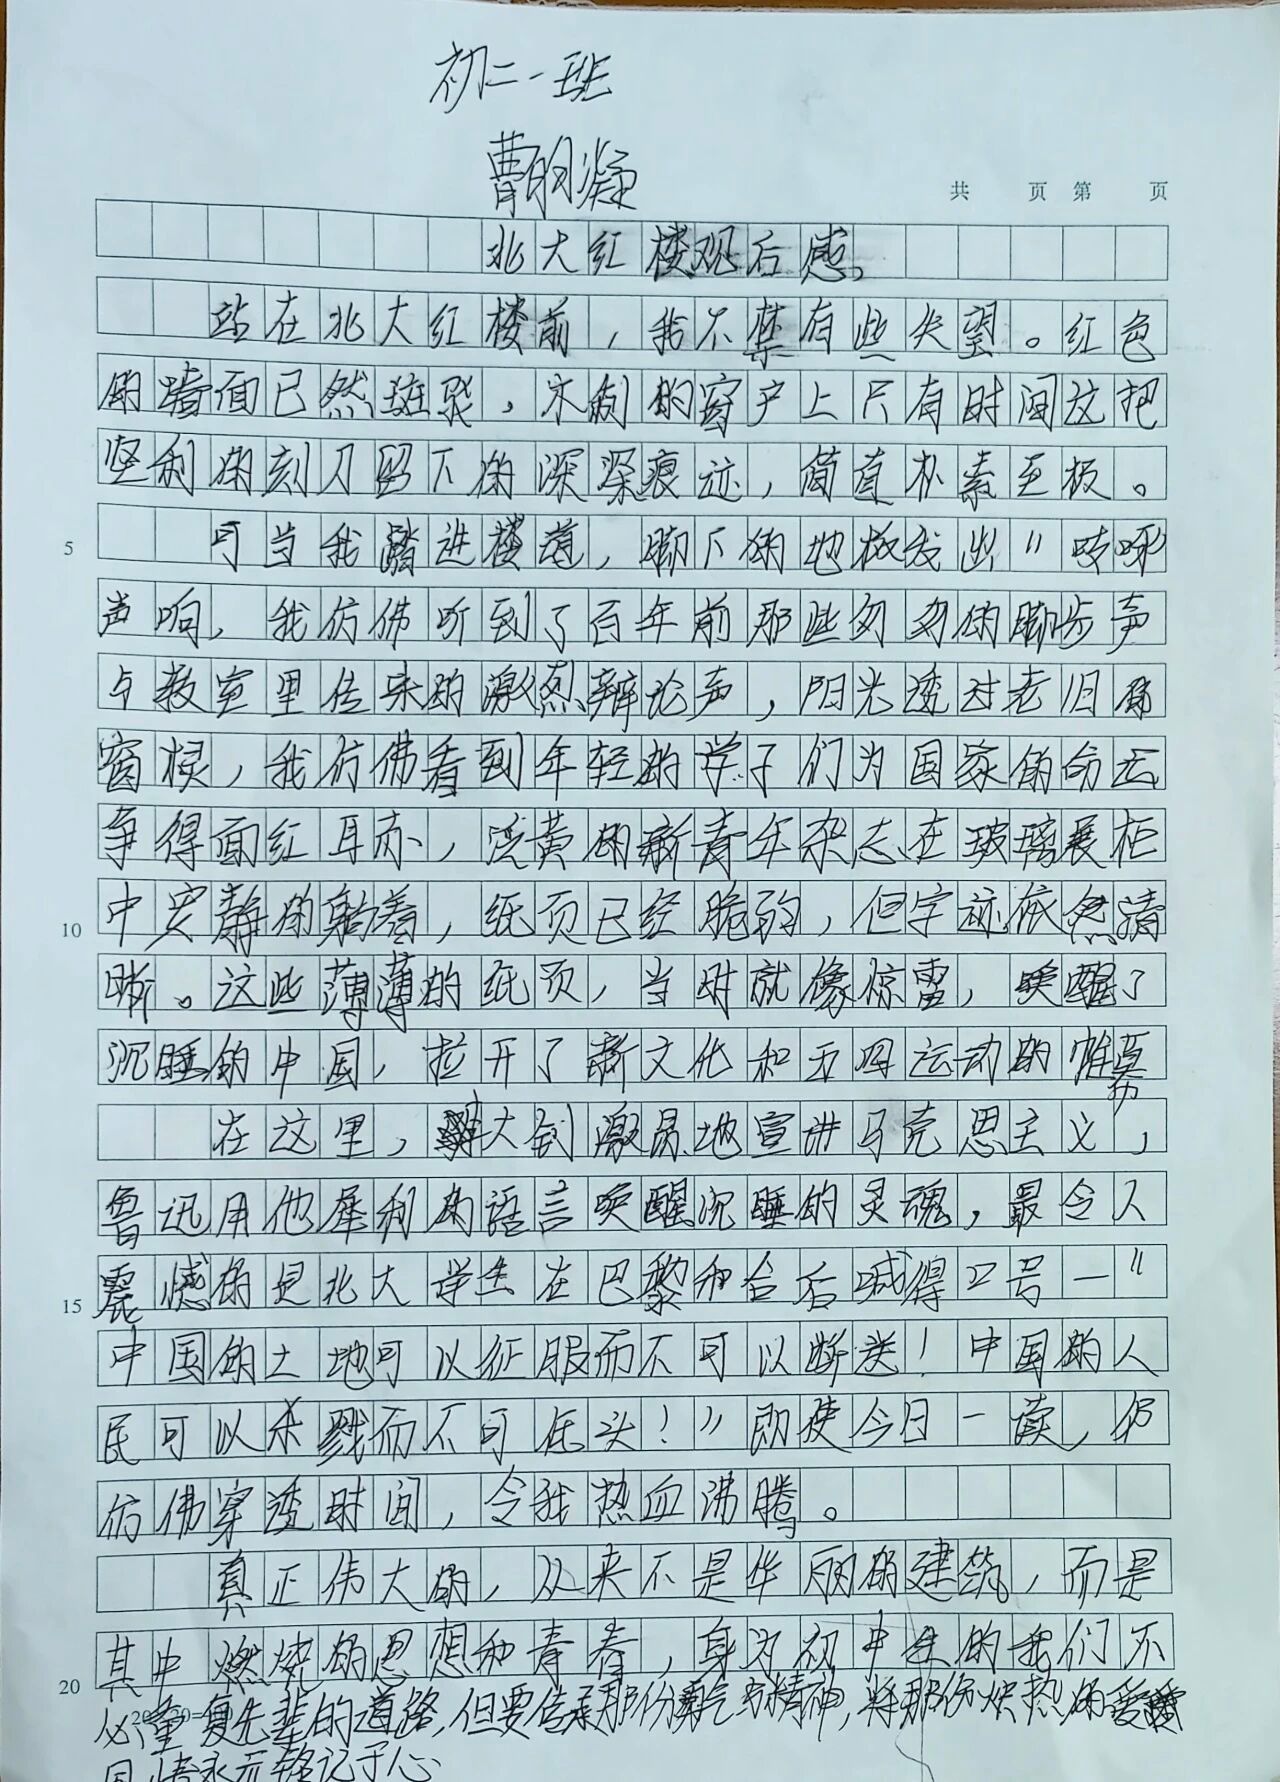 初二一班
曹明凝
共 页 第 页
北大红楼观后感。
站在北大红楼前，我不禁有些失望。红色
的墙面已然斑驳，木制的窗户上只有时间这把
坚利的刻刀留下的深深痕迹，简直朴素至极。
5 可当我踏进楼道，脚下的地板发出“吱呀
声响，我仿佛听到了百年前那些匆匆的脚步声
与教室里传来的激烈辩论声，阳光透过老旧的
窗棂，我仿佛看到年轻的学子们为国家的命运
争得面红耳赤，泛黄的新青年杂志在玻璃展柜
10 中安静的躺着，纸页已经脆弱，但字迹依然清
晰。这些薄薄的纸页，当时就像惊雷，唤醒了
沉睡的中国，拉开了新文化和五四运动的帷幕
在这里，大钊激昂地宣讲马克思主义，
鲁迅用他犀利的语言唤醒沉睡的灵魂，最令人
15 震憾的是北大学生在巴黎和会后喊得口号—“
中国的土地可以征服而不可以断送！中国的人
民可以杀戮而不可低头！”即使今日一读，仍
仿佛穿透时间，令我热血沸腾。
真正伟大的，从来不是华丽的建筑，而是
其中燃烧的思想和青春，身为初中生的我们不
20 必重复先辈的道路，但要传承那份勇气与精神，将那份炽热的爱
国情永远铭记于心